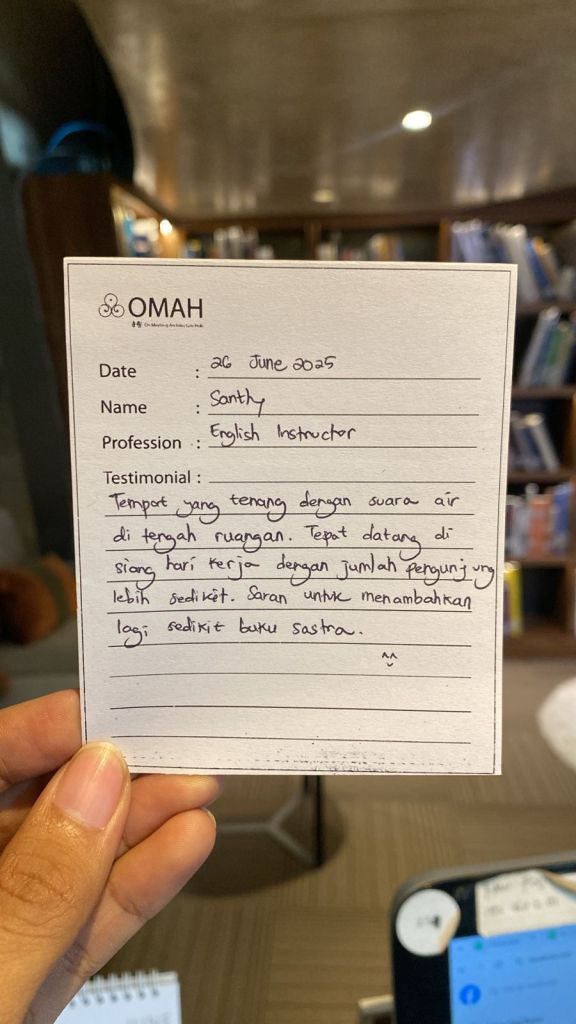 OMAH
Date : 26 June 2025
Name : Santhy
Profession : English Instructor
Testimonial :
Tempat yang tenang dengan suara air
di tengah ruangan. Tepat datang di
siang hari kerja dengan jumlah pengunjung
lebih sedikit. Saran untuk menambahkan
lagi sedikit buku sastra.
^^